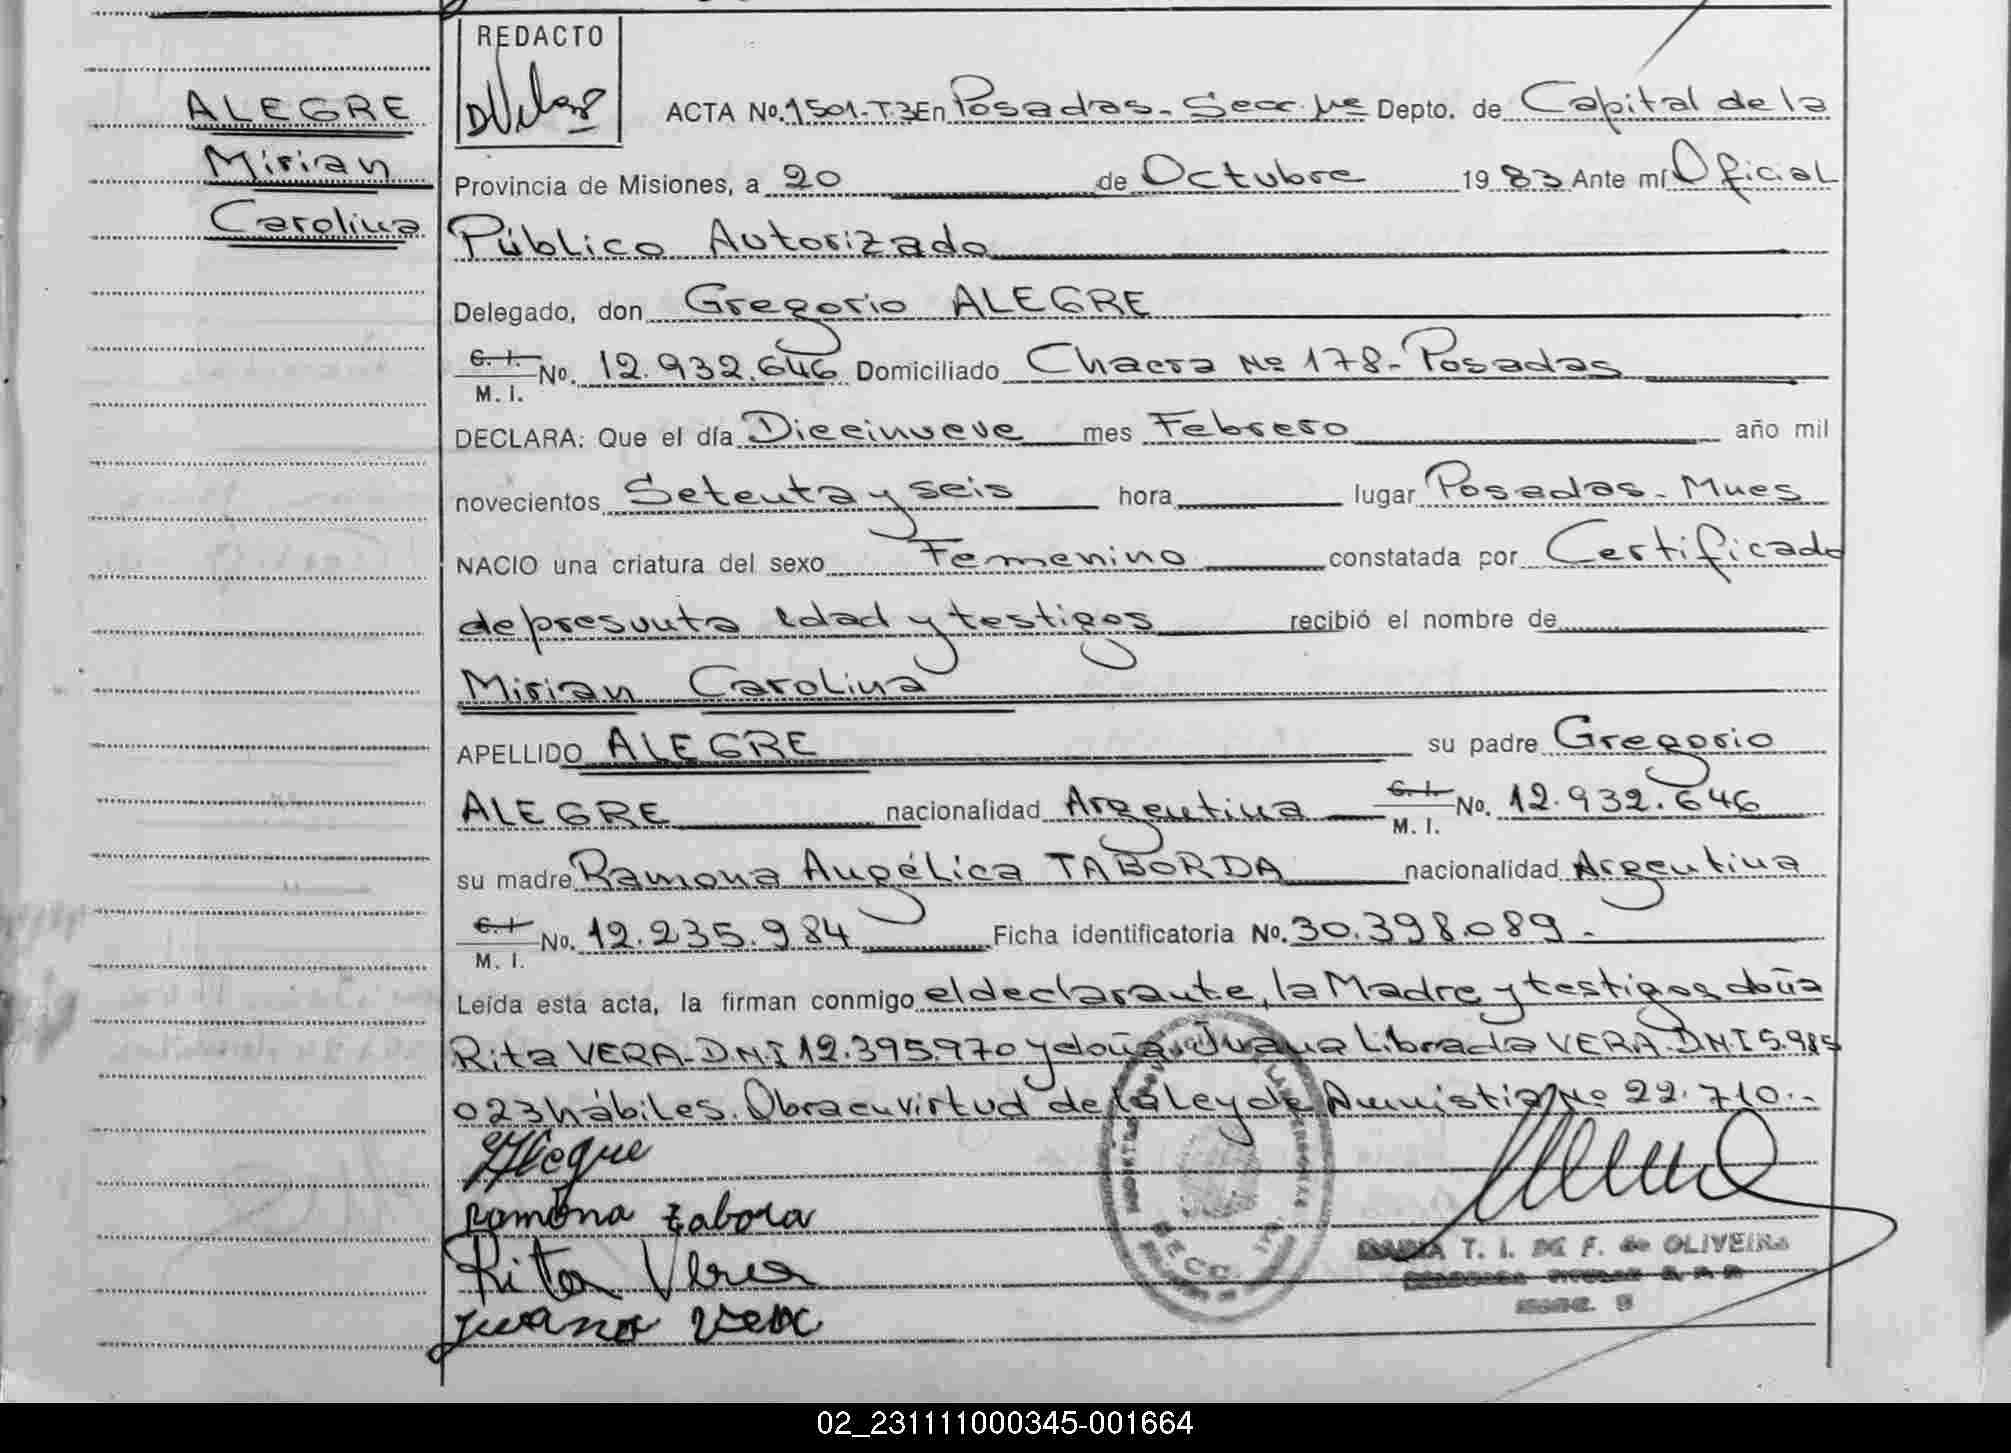 REDACTO
ALEGRE
Mirian
Carolina
ACTA No. 1501-T.3 En Posadas-Secc. Depto. de Capital de la
Provincia de Misiones, a 20 de Octubre 1983 Ante mí Oficial
Público Autorizado
Delegado, don Gregorio ALEGRE
C. I. M. I. No. 12.932.646 Domiciliado Chacra Nº 178-Posadas
DECLARA: Que el día Diecinueve mes Febrero año mil
novecientos Setenta y seis hora lugar Posadas-Mnes
NACIO una criatura del sexo Femenino constatada por Certificado
de presunta edad y testigos recibió el nombre de
Mirian Carolina
APELLIDO ALEGRE su padre Gregorio
ALEGRE nacionalidad Argentina C. I. M. I. No. 12.932.646
su madre Ramona Angélica TABORDA nacionalidad Argentina
C. I M. I. No. 12.235.984 Ficha identificatoria No. 30.398.089.-
Leída esta acta, la firman conmigo el declarante, la Madre y testigos doña
Rita VERA-DNI 12.395.970 y doña Juana Librada VERA DNI 5.985
023 hábiles. Obra en virtud de la Ley de Amnistia Nº 22.710.-
Alegre
Ramona tabora
Rita Vera
Juana Vera
SECC.
T. I. DE F. de OLIVEIRA
02_231111000345-001664